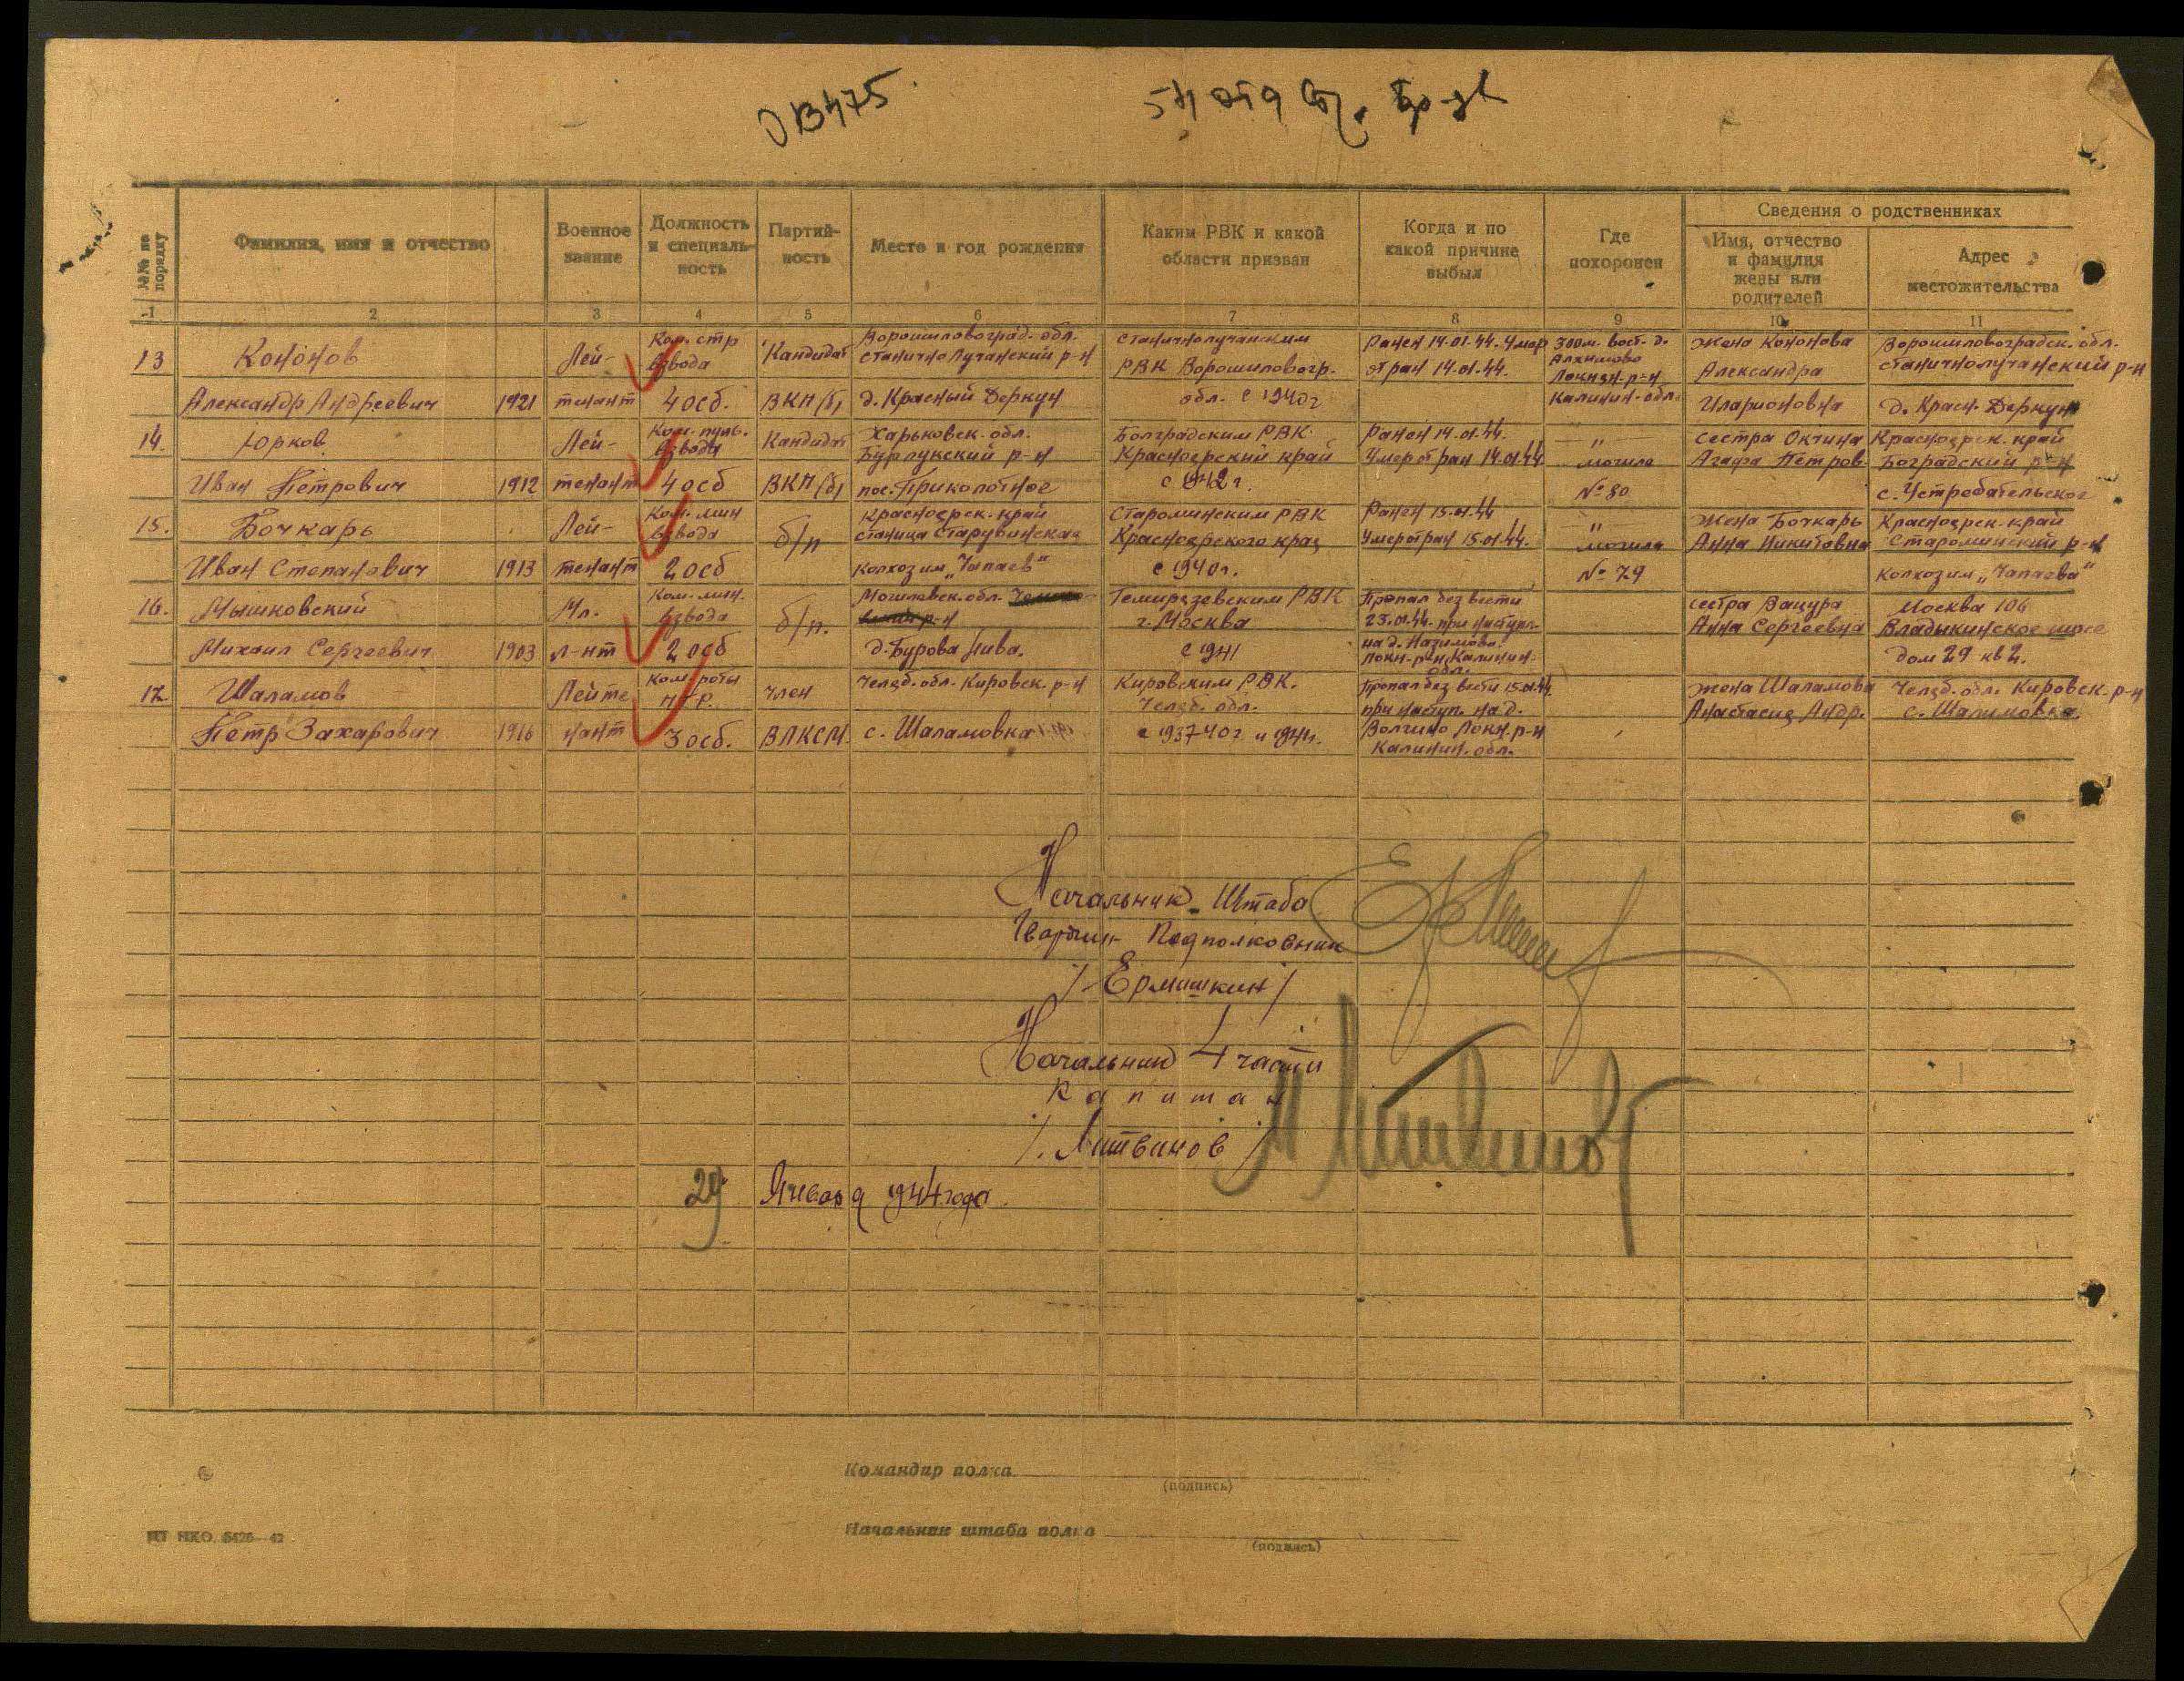 013475.
54 отд стр. бр-да
№№ по порядку
Фамилия, имя и отчество
Военное звание
Должность и специальность
Партийность
Место и год рождения
Каким РВК и какой области призван
Когда и по какой причине выбыл
Где похоронен
Сведения о родственниках
Имя, отчество и фамилия жены или родителей
Адрес местожительства
1 2 3 4 5 6 7 8 9 10 11
13 Кононов Александр Андреевич 1921
Лейтенант
Ком. стр взвода 4 осб.
Кандидат ВКП(б)
Ворошиловоград. обл. станично Лучанский р-н д. Красный Деркун
станичнолучанским РВК Ворошиловогр. обл. с 1940г
Ранен 14.01.44. Умер от ран 14.01.44.
300м. вост. д. Алхимово Локнян. р-н Калинин. обл.
жена Кононова Александра Иларионовна
Ворошиловоградск. обл. станичнолучанский р-н д. Красн. Деркун
14. Юрков Иван Петрович 1912
Лейтенант
Ком. пуль. взвода 4 осб
Кандидат ВКП(б)
Харьковск. обл. Бурлукский р-н пос. Приколотное
Боградским РВК Красноярский край с 1942 г.
Ранен 14.01.44. Умер от ран 14.01.44
" могила № 80
сестра Октина Агафа Петров.
Красноярск. край Боградский р-н
15. Бочкарь Иван Степанович 1913
Лейтенант
Ком. мин взвода 2 осб
б/п
Красноярск. край станица колхоз им „Чапаев"
Староминским РВК Красноярского края с 1940г.
Ранен 15.01.44 Умер от ран 15.01.44.
" могила № 79
жена Бочкарь Анна Никитовна
Красноярск. край Староминский р-н колхоз им „Чапаева"
16. Мышковский Михаил Сергеевич 1903
Мл. л-нт
Ком. мин. взвода 2 осб
б/п.
Могилевск. обл. р-н д. Бурова Нива.
Темирязевским РВК г. Москва с 1941
Пропал без вести 23.01.44. при наступл. на д. Назимово Локн. р-н Калинин. обл.
сестра Вацура Анна Сергеевна
Москва 106 Владыкинское шосе дом 29 кв 2.
17. Шаламов Петр Захарович 1916
Лейтенант
Ком. роты ПТР. 3 осб.
член ВЛКСМ.
Челяб. обл. Кировск. р-н с. Шаламовка
Кировским РВК. Челяб. обл. с 1937 40г и 1941г.
Пропал без вести 15.01.44. при наступ. на д. Волгино Локн. р-н Калинин. обл.
жена Шаламова Анастасия Андр.
Челяб. обл. Кировск. р-н с. Шаламовка.
Начальник Штаба
Гвардии Подполковник
/ Ермишкин /
Начальник 4 части
Капитан
/. Литвинов /
29 Января 1944 года.
Командир полка
(подпись)
Начальник штаба полка
(подпись)